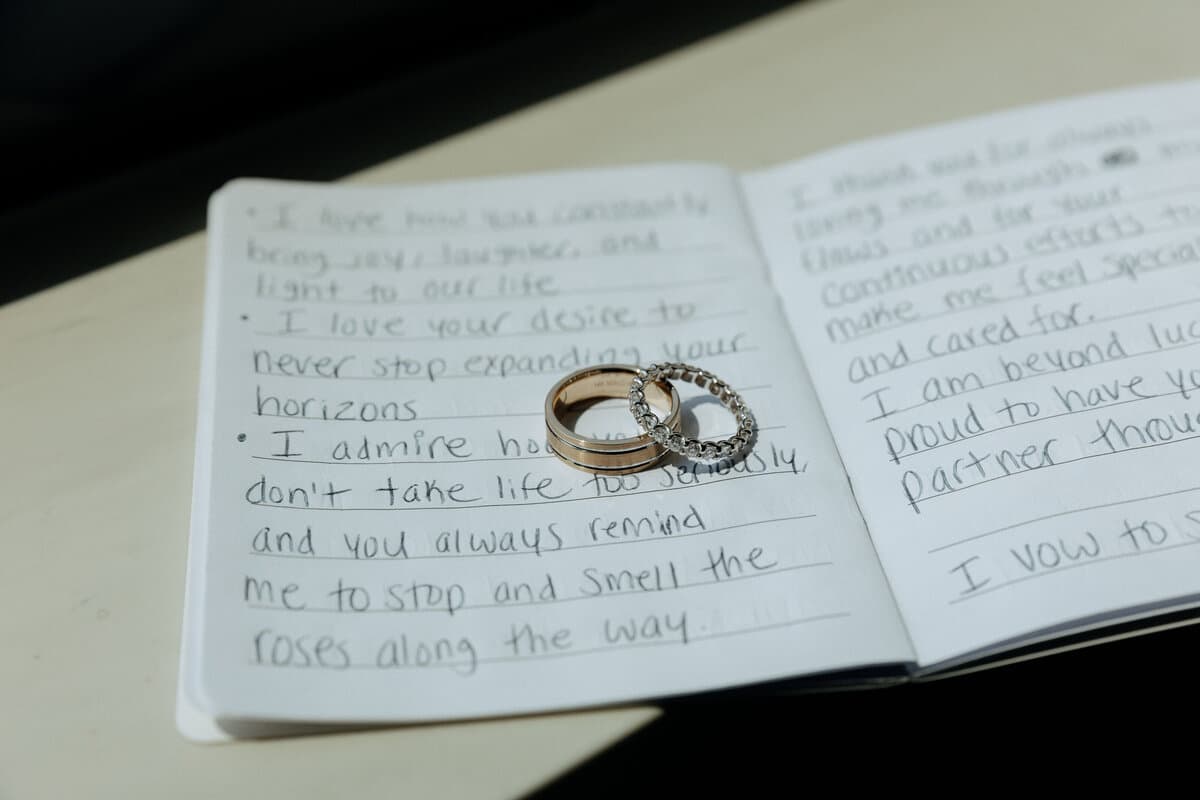 • I love how you constantly
bring joy, laughter, and
light to our life
• I love your desire to
never stop expanding your
horizons
• I admire how you
don't take life too seriously,
and you always remind
me to stop and smell the
roses along the way.
I thank you for always
loving me through my
flaws and for your
continuous efforts to
make me feel special
and cared for.
I am beyond
proud to have
partner
I vow to